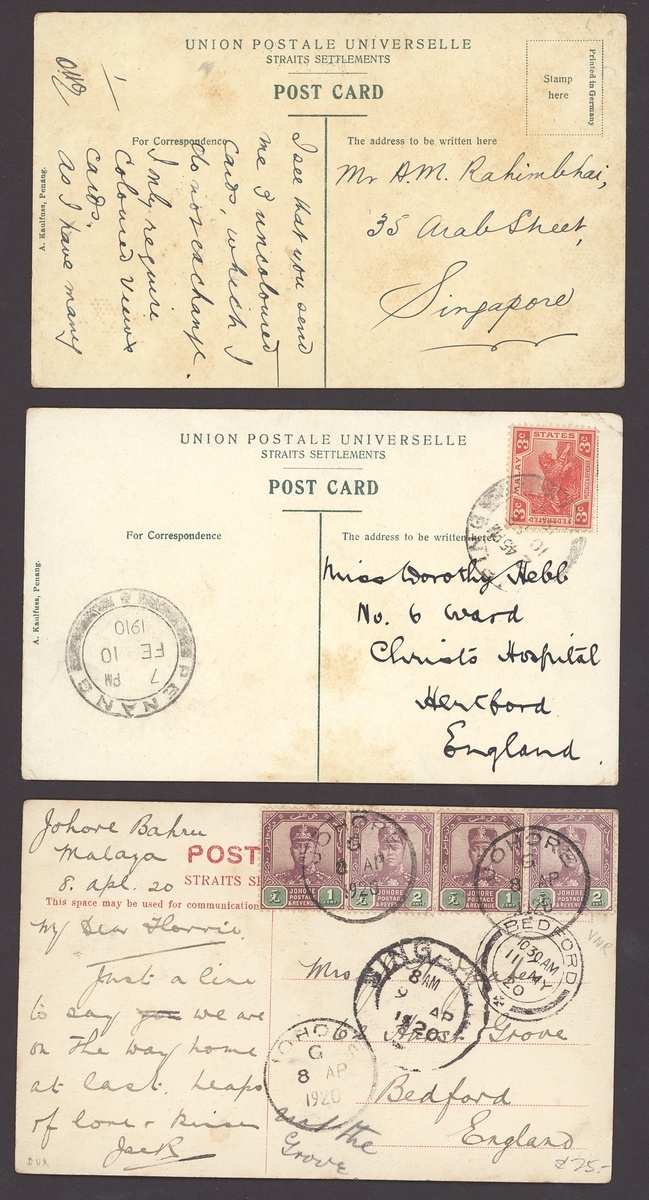 UNION POSTALE UNIVERSELLE
STRAITS SETTLEMENTS
POST CARD
Stamp
here
Printed in Germany
For Correspondence
The address to be written here
A. Kaulfuss, Penang.
I see that you send
me 1 uncoloured
cards, which I
do not exchange.
I only require
Coloured Views
cards.
as I have many
Mr A.M. Rahimbhai,
35 Arab Street,
Singapore
UNION POSTALE UNIVERSELLE
STRAITS SETTLEMENTS
POST CARD
For Correspondence
The address to be written here
A. Kaulfuss, Penang.
FEDERATED MALAY STATES
3c 3c
3c 3c
PENANG
7 PM
FE 10
1910
Miss Dorothy Hebb
No. 6 Ward
Christs Hospital
Hertford
England.
Johore Bahru
Malaya
8. Apl. 20
POST
STRAITS SE
This space may be used for communication
JOHORE
POSTAGE
& REVENUE
1 CENT
JOHORE
POSTAGE
& REVENUE
2 CENTS
JOHORE
POSTAGE
& REVENUE
1 CENT
JOHORE
POSTAGE
& REVENUE
2
JOHORE
G
8 AP
1920
JOHORE
G
8 AP
1920
BEDFORD
10 30 AM
11 MY
20
8 AM
9 AP
1920
JOHORE
G
8 AP
1920
My Dear Florrie
Just a line
to say you we are
on the way home
at last. heaps
of love & kisses
Jack
Mrs
Grove
Bedford
England
The
Grove
£25.-